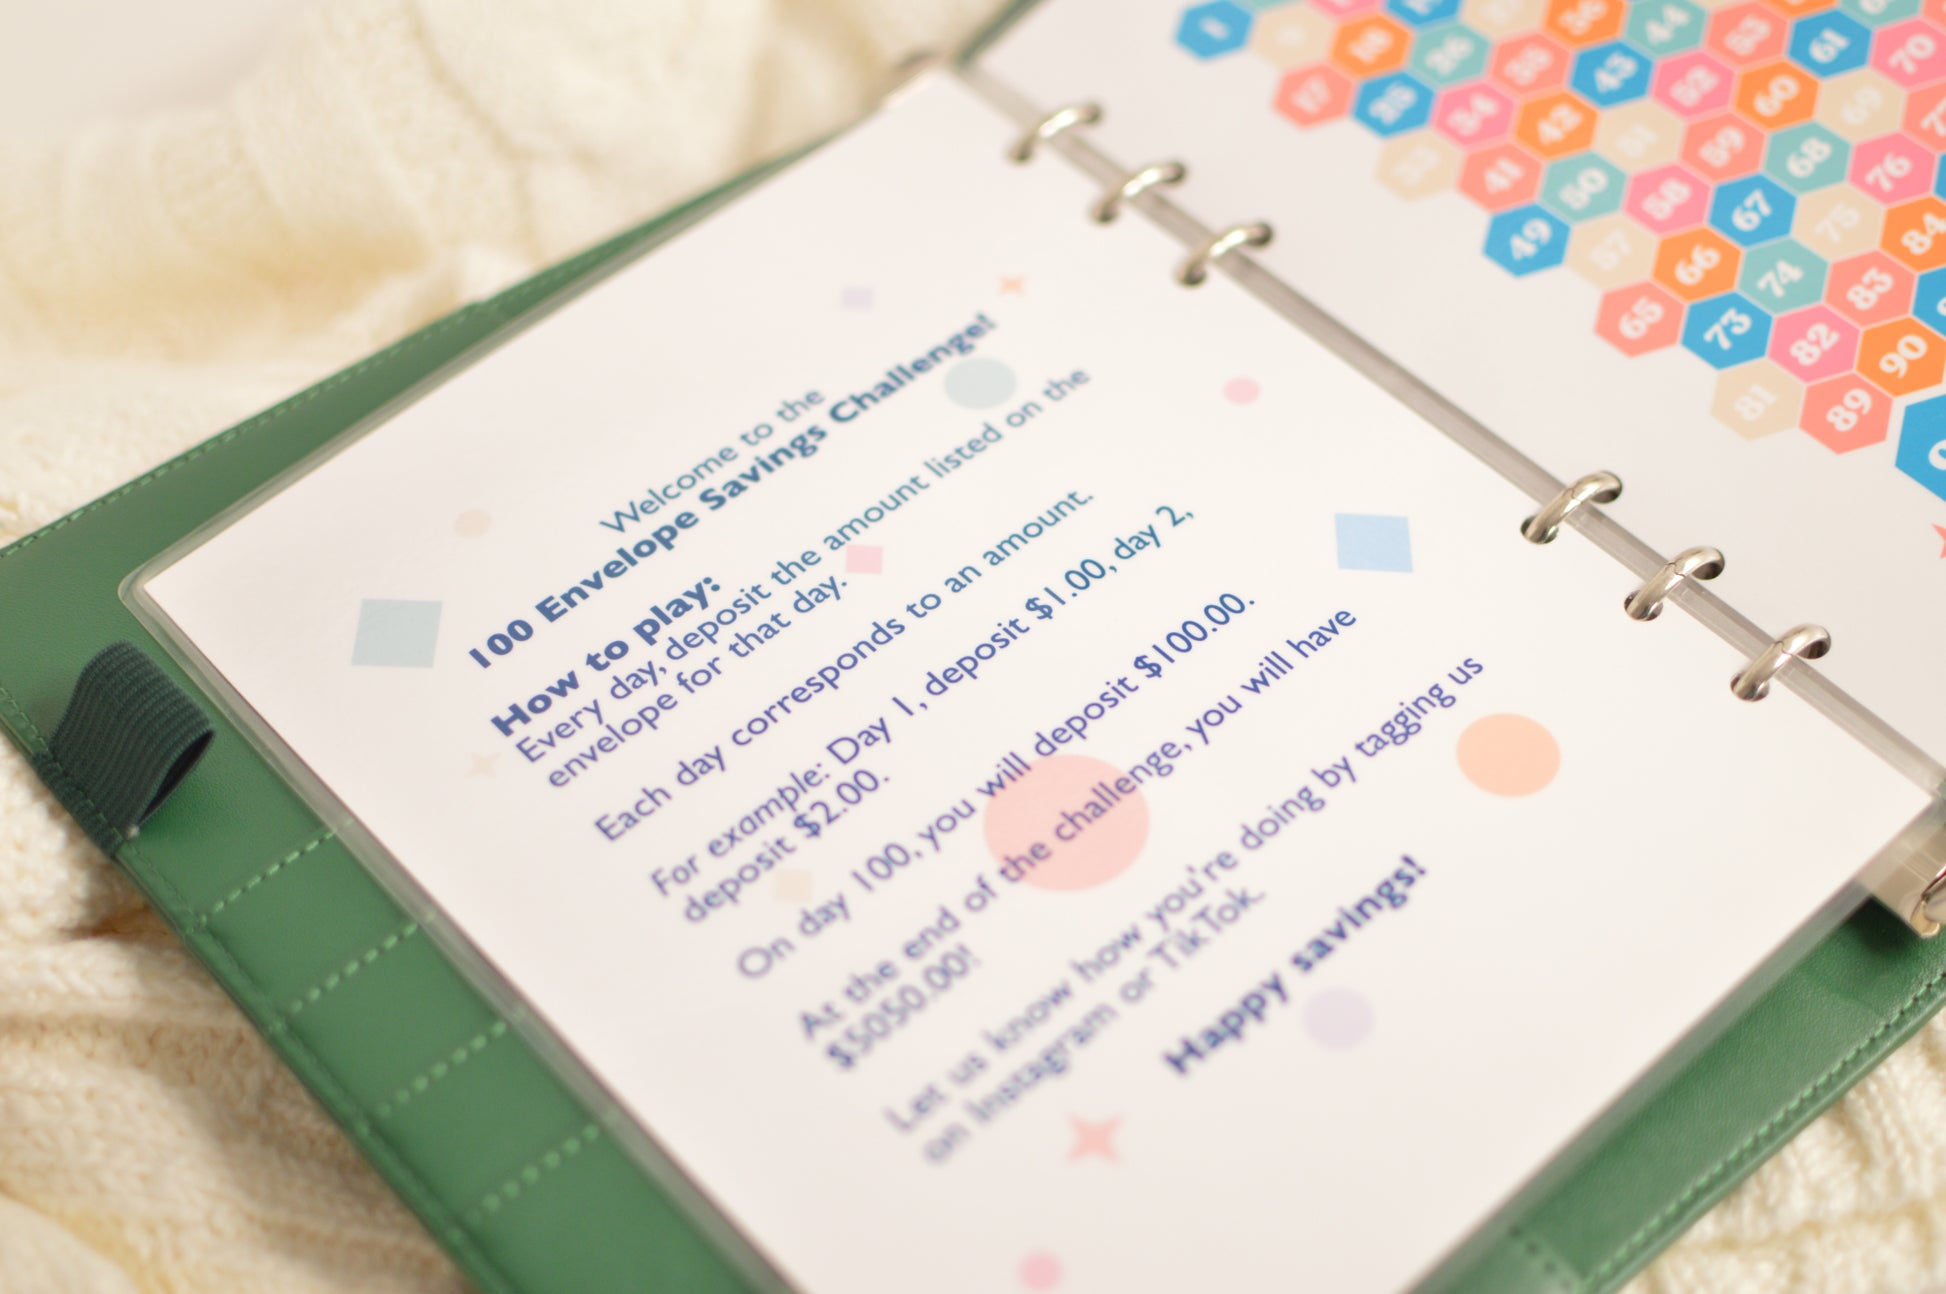 Welcome to the
100 Envelope Savings Challenge!
How to play:
Every day, deposit the amount listed on the
envelope for that day.
Each day corresponds to an amount.
For example: Day 1, deposit $1.00, day 2,
deposit $2.00.
On day 100, you will deposit $100.00.
At the end of the challenge, you will have
$5050.00!
Let us know how you're doing by tagging us
on Instagram or TikTok.
Happy savings!
1
18 26 35 43 52 60 69
17 25 34 42 51 59 68 76
33 41 50 58 67 75 84
49 57 66 74 83
65 73 82 90
81 89
44 53 61 70
56